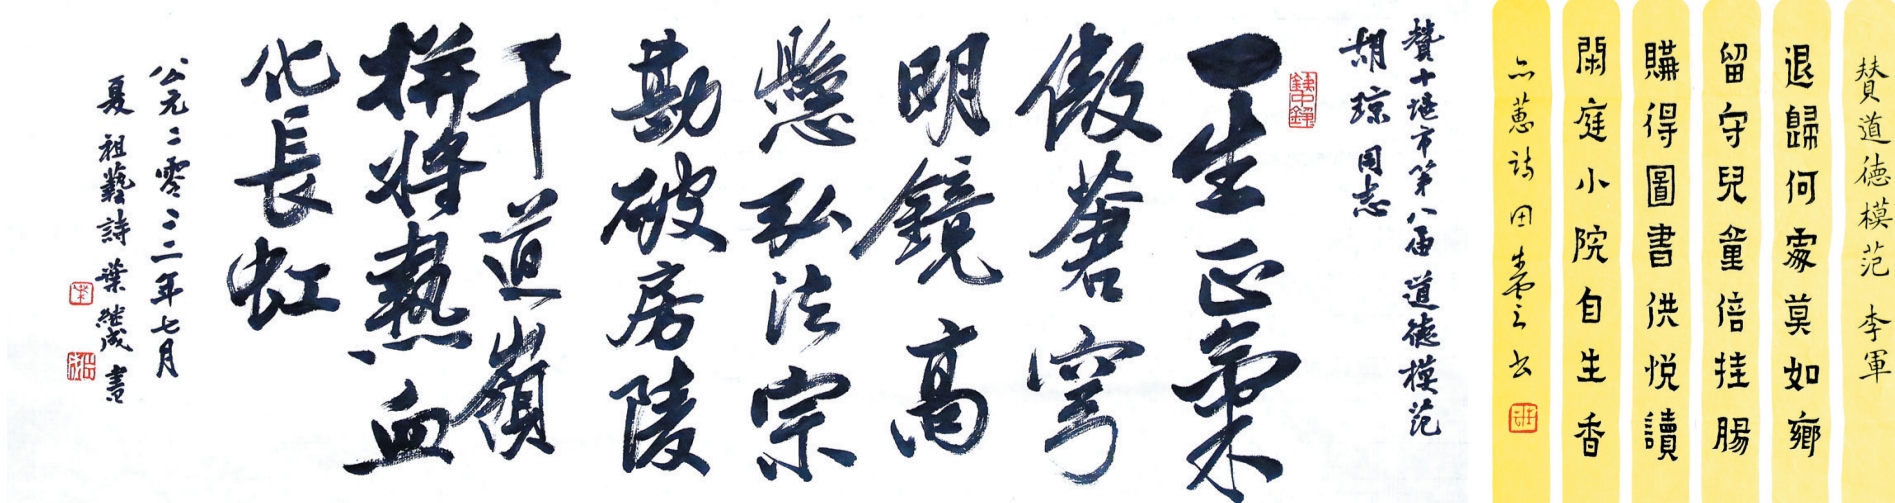 赞道德模范 李軍
退歸何處莫如鄉
留守兒童倍挂腸
購得圖書供悅讀
閑庭小院自生香
蕙诗田云书
贊十堰市第八届道德模范
胡琼同志
一生正氣
傲蒼穹
明鏡高
懸弘法宗
勘破房陵
千道嶺
拼将熱血
化長虹
公元二零二二年七月
夏祖藝詩 葉继成書